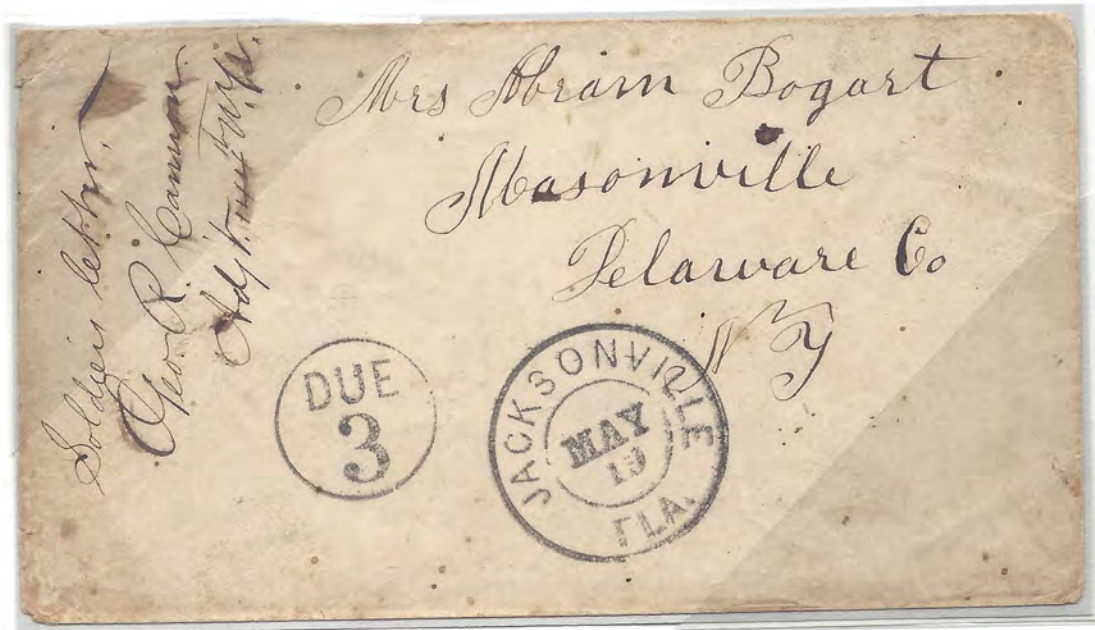 Soldiers letter.
Geo. R. Cannon
Adjt
Mrs Abram Bogart
Masonville
Delaware Co
N Y
DUE
3
JACKSONVILLE
MAY
19
FLA.